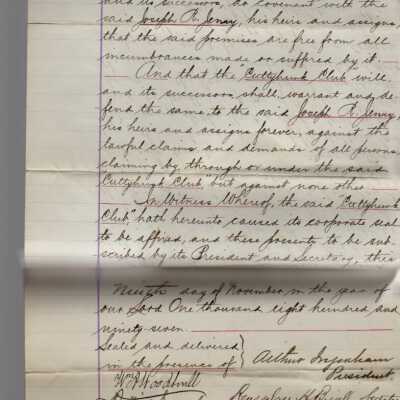 and its successors, do covenant with the
said Joseph R. Jenny, his heirs and assigns,
that the said premises are free from all
incumbrances made or suffered by it.
And that the "Cuttyhunk Club" will,
and its successors shall, warrant and de-
fend the same to the said Joseph R. Jenny,
his heirs and assigns forever, against the
lawful claims and demands of all persons,
claiming by, through or under the said
Cuttyhunk Club," but against none other.
In Witness Whereof, the said "Cuttyhunk
Club" hath hereunto caused its corporate seal
to be affixed, and these presents to be sub-
scribed by its President and Secretary, this
Ninth day of November in the year of
our Lord One thousand eight hundred and
ninety-seven.
Sealed and delivered
in the presence of
Arthur
President.
Wm